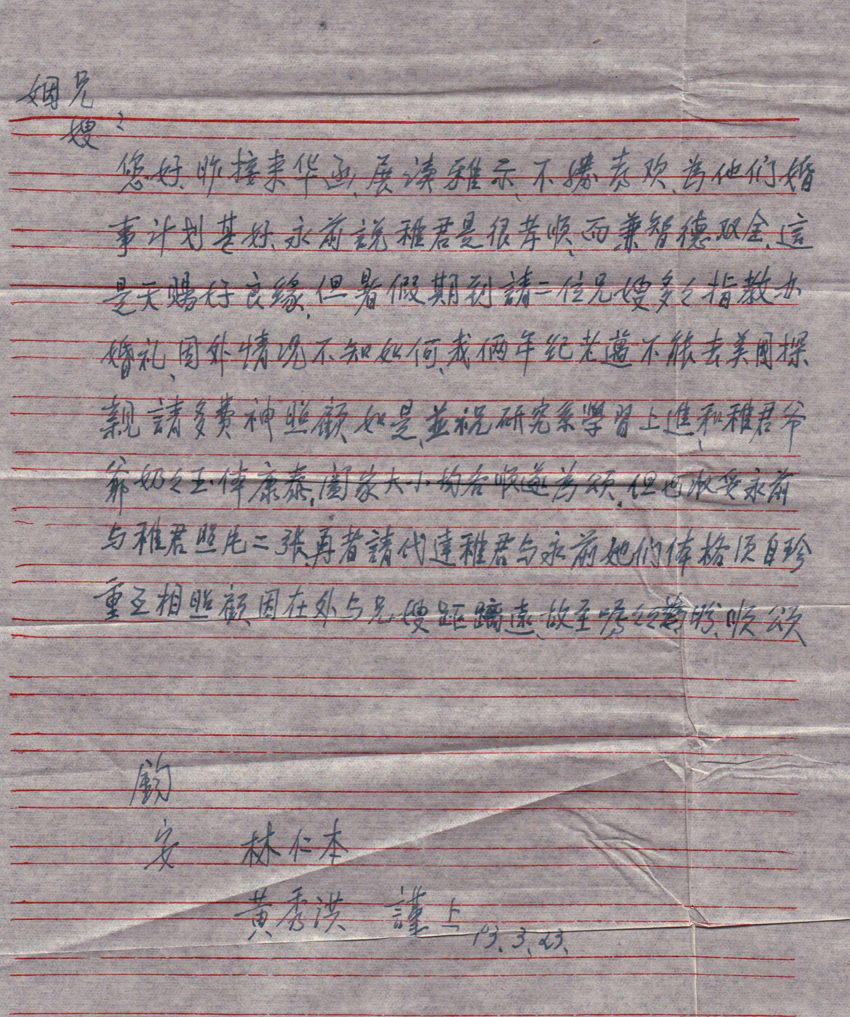 姻兄
嫂:
您好、昨接来华函、展读雅示、不勝喜欢、為他们婚
事计划甚好、永前説稚君是很孝順、而兼智德双全、這
是天賜好良緣、但暑假期到請二位兄嫂多々指教办
婚礼、国外情况不知如何、我俩年纪老邁不能去美国探
親請多費神照顧如是、並祝研究系學習上進、和稚君爷
爺奶々玉体康泰、闔家大小均各順遂為頌、但也收妥永前
与稚君照片二張、再者請代達稚君与永前她们体格须自珍
重互相照顧、因在外与兄嫂距離遠、故至嘱 為盼、順頌
鈞
安 林仁本
黃秀洪 謹上
93、3、23、